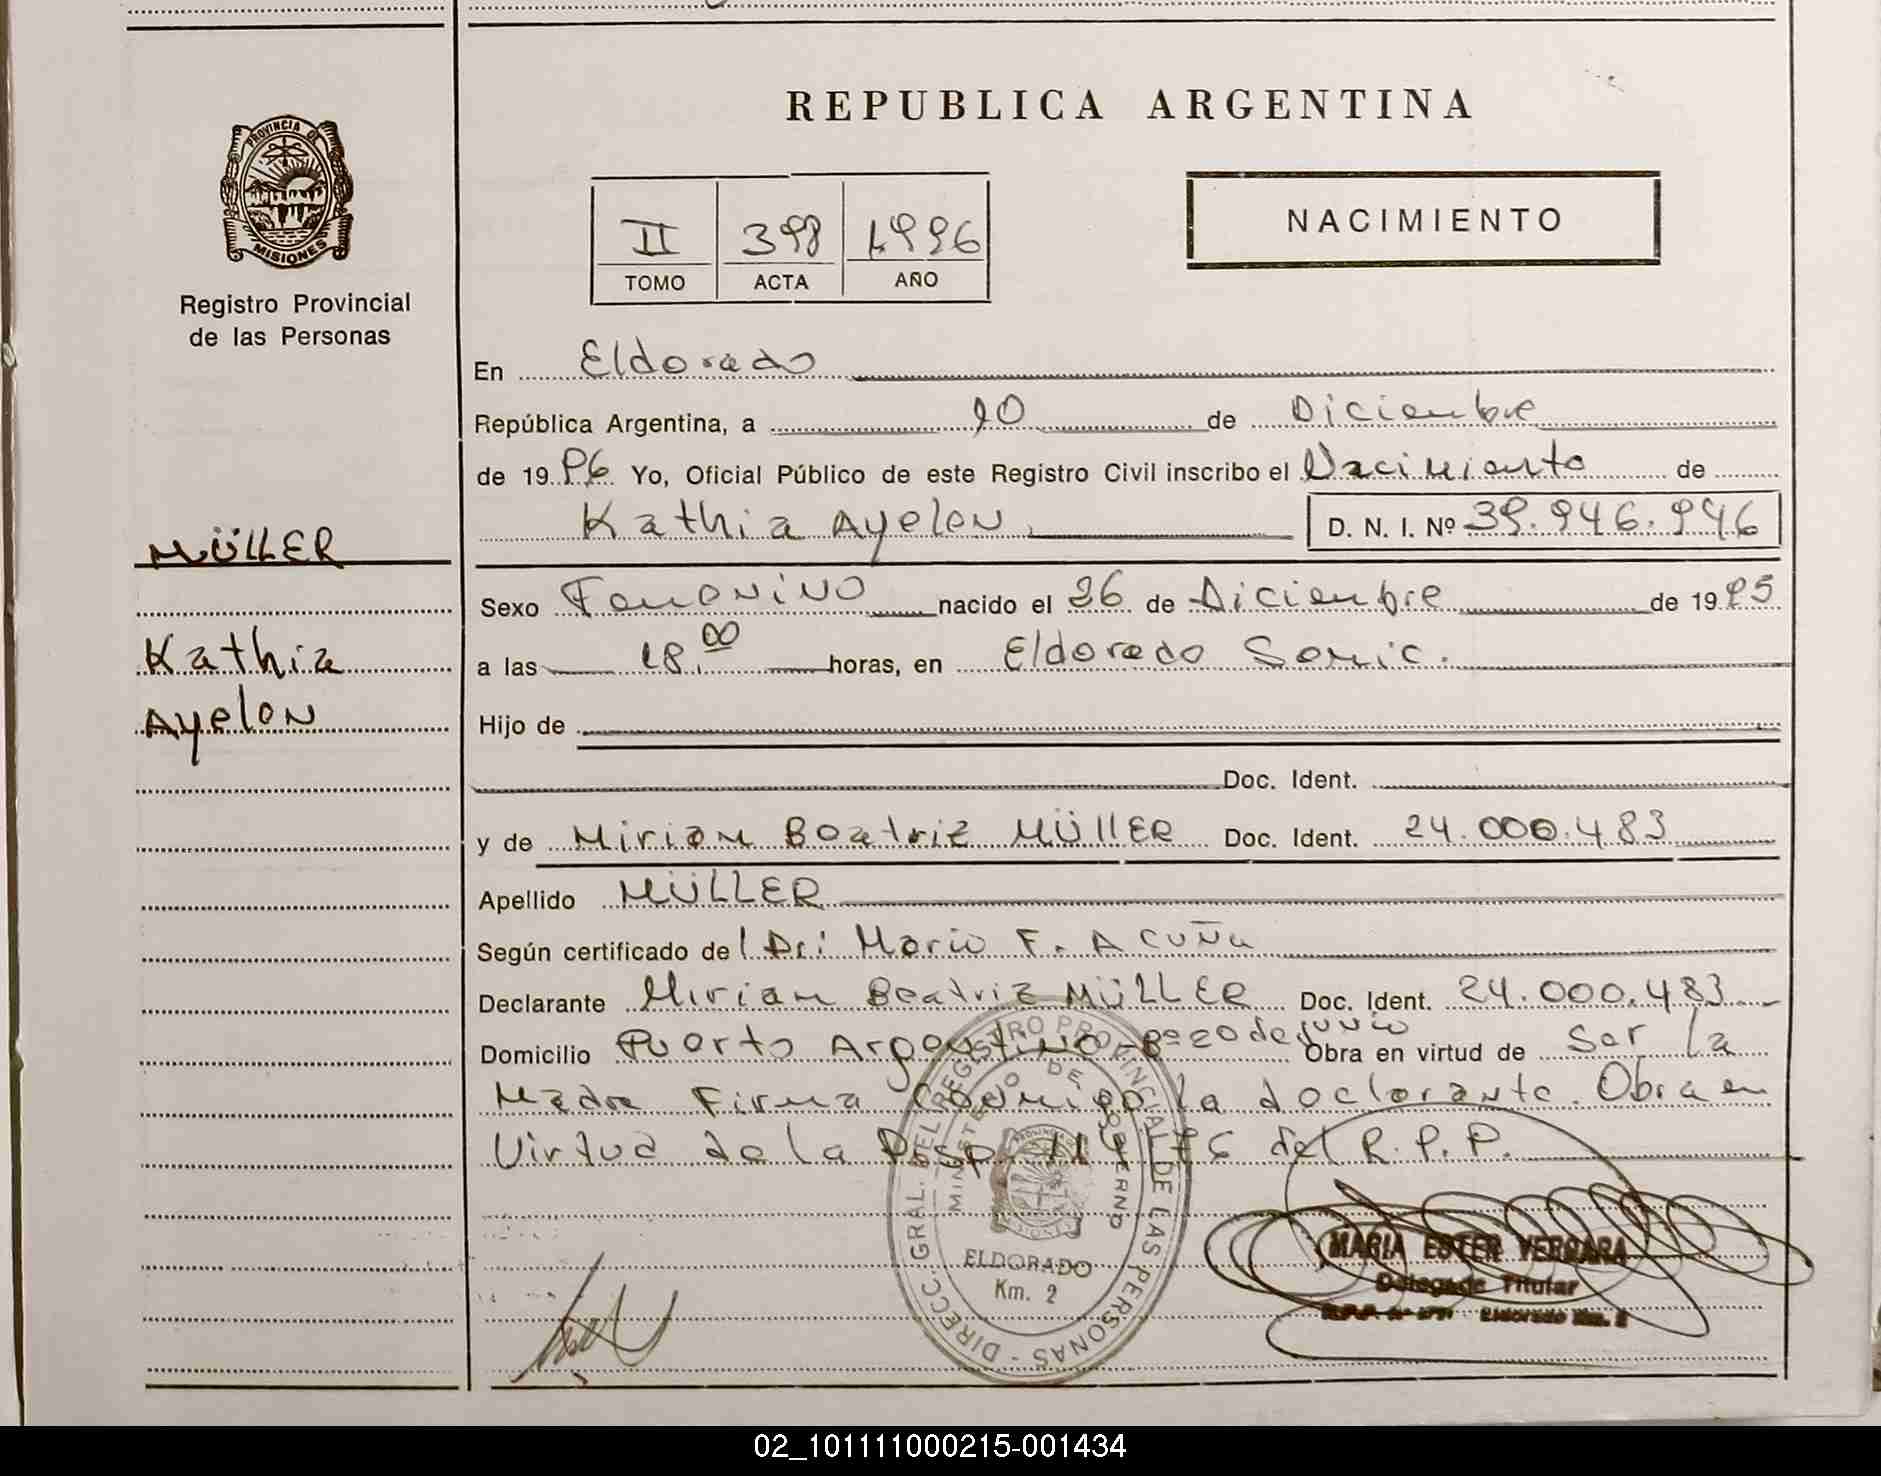 PROVINCIA DE
MISIONES
Registro Provincial
de las Personas
MÜLLER
Kathia
Ayelen
REPUBLICA ARGENTINA
II 398 1996
TOMO ACTA AÑO
NACIMIENTO
En Eldorado
República Argentina, a 10 de Diciembre
de 1996 Yo, Oficial Público de este Registro Civil inscribo el Nacimiento de
Kathia Ayelen D. N. I. Nº 39.946.946
Sexo Femenino nacido el 26 de Diciembre de 1995
a las 18.00 horas, en Eldorado Samic.
Hijo de
Doc. Ident.
y de Mirian Beatriz MÜLLER Doc. Ident. 24.000.483
Apellido MÜLLER
Según certificado del Dr: Mario F. Acuña
Declarante Mirian Beatriz MÜLLER Doc. Ident. 24.000.483
Domicilio Puerto Argentino Bº 20 de junio Obra en virtud de Ser la
Madre Firma Conmigo la declarante. Obra en
Virtud de la Disp. 114/76 del R.P.P.
DIRECC. GRAL. DEL REGISTRO PROVINCIAL DE LAS PERSONAS
MINISTERIO DE GOBIERNO
ELDORADO
Km. 2
MARIA ESTER VERGARA
Delegada Titular
Eldorado Km. 2
02_101111000215-001434